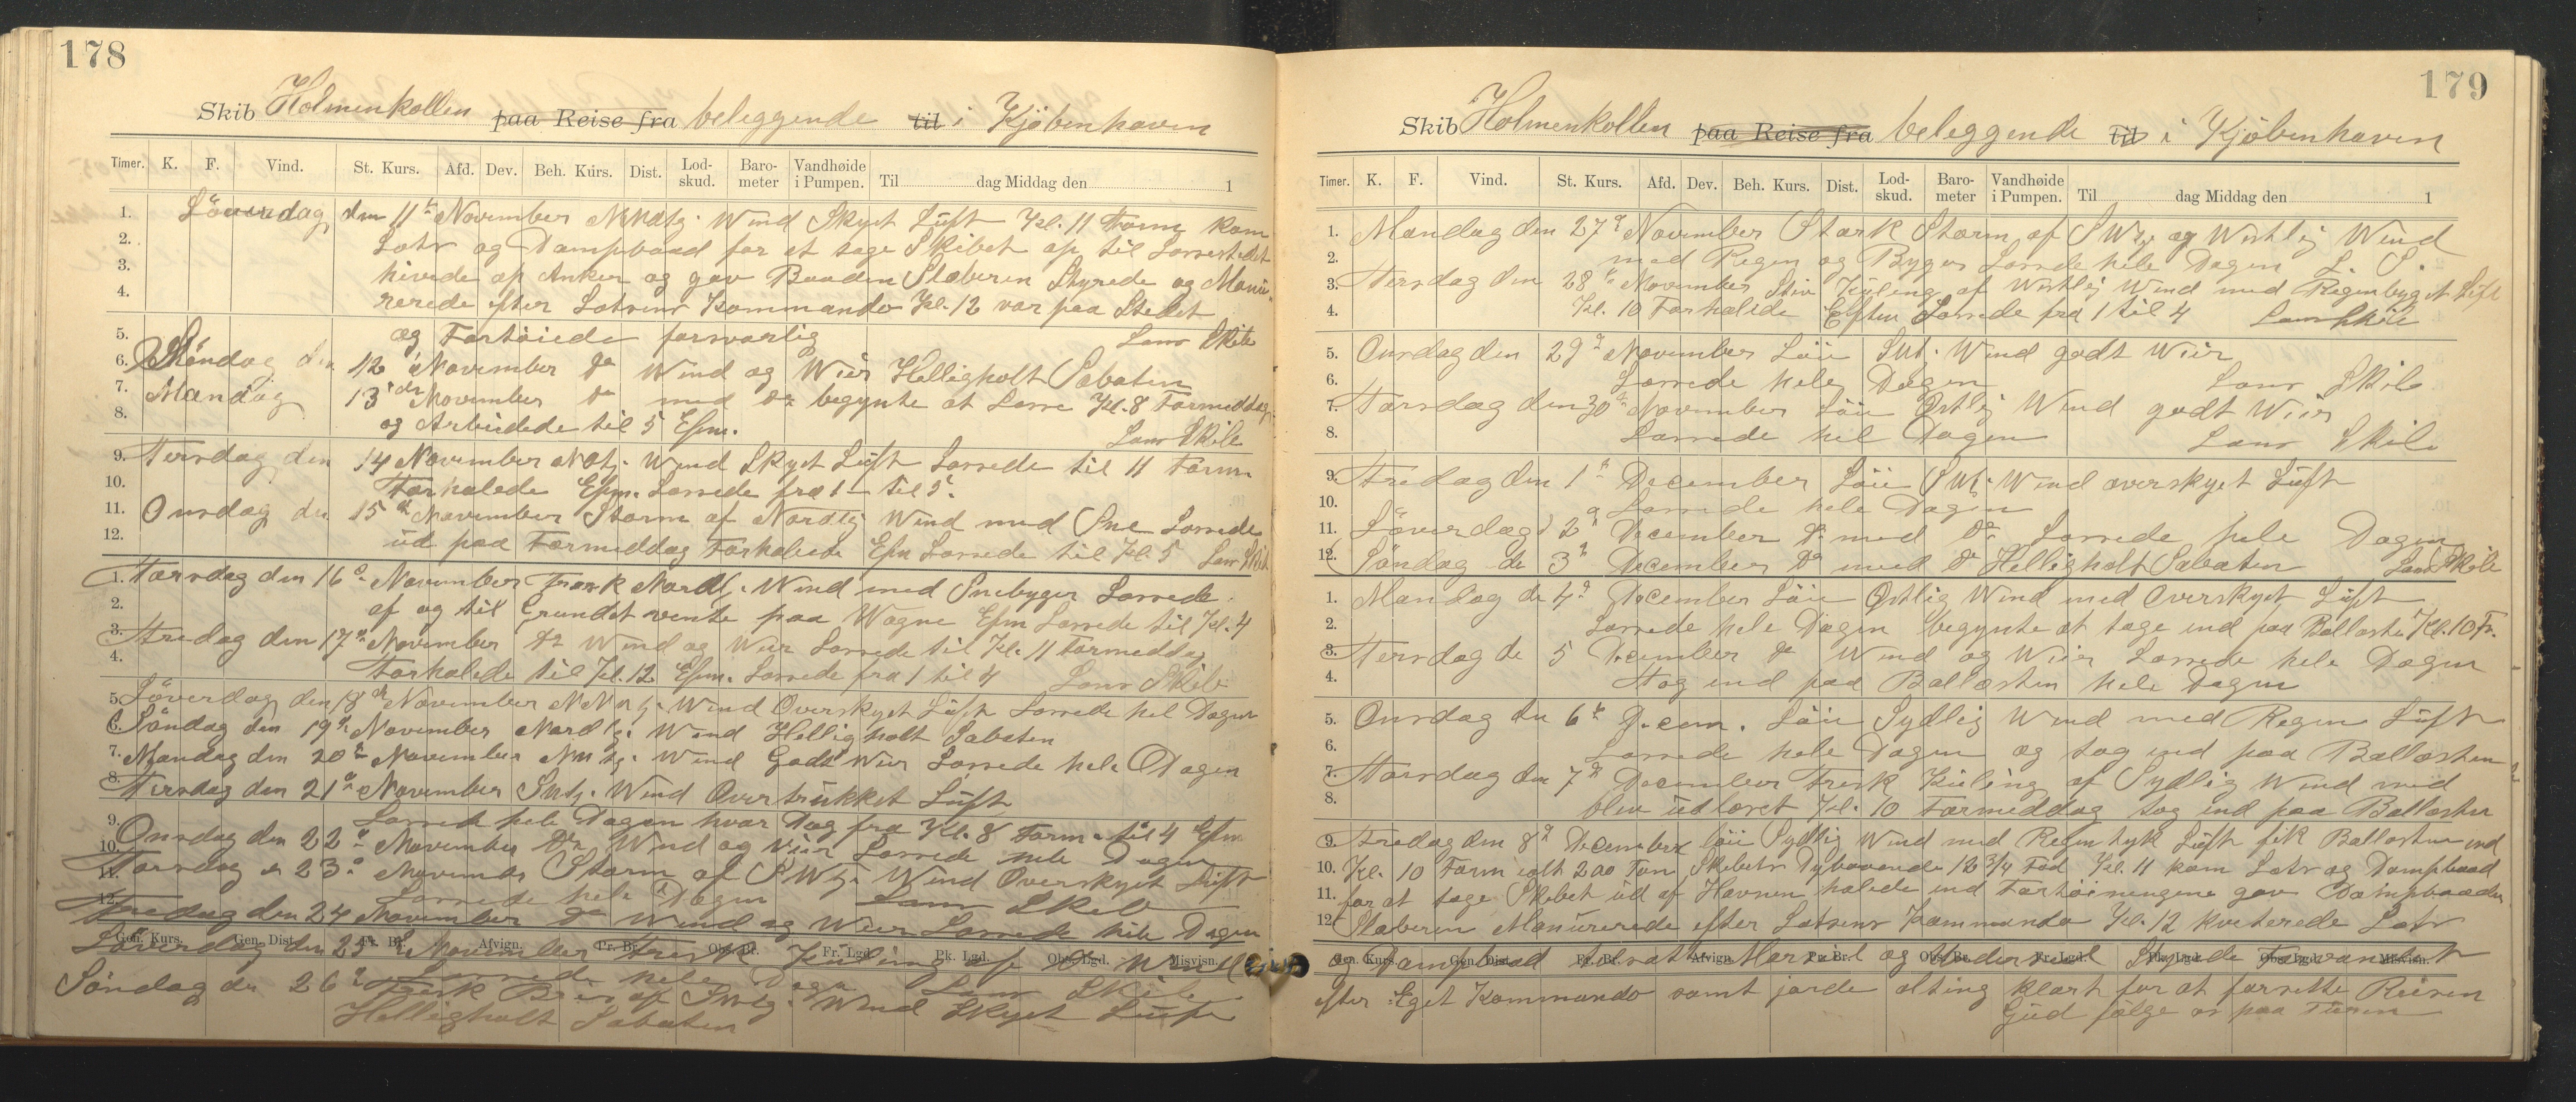 178
Skib Holmenkollen paa Reise fra beleggende til i Kjöbenhaven
Timer. K. F. Vind. St. Kurs. Afd. Dev. Beh. Kurs. Dist. Lod-skud. Baro-meter Vandhøide i Pumpen. Til dag Middag den 1
1. Löverdag den 11te November Wind Skyet Lüft Kl. 11 Form kom
2. Lots og Dampbaad for at tage Skibet op til Lossestedet
3. hivede op Anker og gav Baaden Slæberen Styrede og Manü-
4. rerede efter Lotsens Kommando Kl. 12 var paa Stedet
5. og Fortöiede forsvarlig Lens Skib
6. Söndag den 12 November Do Wind og Wiir Helligholt Sabaten
7. Mandag 13de November Do med Do begynte at Losse Kl. 8 Formiddag
8. og Arbeidede til 5 Efm. Lens Skib
9. Tirsdag den 14 November Wind Skyet Lüft Lossede til 11 Form
10. Forhalede Efm. Lossede fra 1 til 5.
11. Onsdag den 15de November Storm af Nordlig Wind med Sne Lossede
12. üd paa Formiddag Forhalede Efm Lossede til Kl 5 Lens Skib
1. Torsdag den 16de November Frask Nordl. Wind med Snebyger Lossede
2. af og til Grundet vente paa Wogne Efm Lossede til Kl. 4
3. Fredag den 17de November Do Wind og Wiir Lossede til Kl. 11 Formeddag
4. Forhalede til Kl. 12 Efm. Lossede fra 1 til 4 Lens Skib
5. Löverdag den 18de November Wind Overskyet Lüft Lossede hel Dagen
6. Söndag den 19de November Nordlig Wind Helligholt Sabaten
7. Mandag den 20de November Wind Godt Wiir Lossede hele Dagen
8. Tirsdag den 21de November Wind Overtrükket Lüft
9. Lossede hele Dagen hvor Dag fra Kl. 8 Form. til 4 Efm
10. Onsdag den 22de November Do Wind og Wiir Lossede hele Dagen
11. Torsdag d 23de November Storm af Wind Overskyet Lüft
12. Lossede hele Dagen Lens Skib
Fredag den 24 November Do Wind og Wiir Lossede hele Dagen
Gen. Kurs. Gen. Dist. Fr. Br. Afvign. Pr. Br. Obs. Br. Fr. Lgd. Pk. Lgd. Obs. Lgd. Misvisn.
Löverdag den 25de November Frisk Küling af Wind
Lossede hele Dagen Lens Skib
Söndag den 26de Frisk Bris af Wind Skyet Lüft
Helligholt Sabaten
179
Skib Holmenkollen paa Reise fra beleggende til i Kjöbenhaven
Timer. K. F. Vind. St. Kurs. Afd. Dev. Beh. Kurs. Dist. Lod-skud. Baro-meter Vandhøide i Pumpen. Til dag Middag den 1
1. Mandag den 27de November Stærk Storm af og Westlig Wind
2. med Regen og Byger Lossede hele Dagen L. S.
3. Tersdag den 28de November Stiv Küling af Westlig Wind med Regenbyget Lüft
4. Kl. 10 Forhalede Eften Lossede fra 1 til 4 Lens Skib
5. Onsdag den 29de November Löü Wind godt Wiir
6. Lossede hele Dagen Lens Skib
7. Torsdag den 30de November Löü Östlig Wind godt Wiir
8. Lossede hel Dagen Lens Skib
9. Fredag den 1te December Löü Wind overskyet Lüft
10. Lossede hele Dagen
11. Löverdag d 2de December Do med Do Lossede hele Dagen
12. Söndag de 3de December Do med Do Helligholt Sabaten Lens Skib
1. Mandag de 4de December Löü Östlig Wind med Overskyet Lüft
2. Lossede hele Dagen begynte at tage ind paa Ballasten Kl. 10 Fr.
3. Tersdag de 5 December Do Wind og Wiir Lossede hele Dagen
4. Tog ind paa Ballasten hele Dagen
5. Onsdag den 6te Decem. Löü Sydlig Wind med Regen Lüft
6. Lossede hele Dagen og tog ind paa Ballasten
7. Torsdag den 7de December Frisk Küling af Sydlig Wind med
8. blev üdlosset Kl. 10 Formeddag tog ind paa Ballasten
9. Fredag den 8de December löü Sydlig Wind med Regen tyk Lüft fik Ballasten ind
10. Kl. 10 Form ialt 200 Ton Skibets Dybgaaende 12 3/4 Fod Kl. 11 kom Lots og Dampbaad
11. for at tage Skibet üd af Havnen halede ind Fortöiningene gav Dampbaaden
12. Slæberen Manürerede efter Lotsens Kommando Kl. 12 kviterede Lots
Gen. Kurs. Gen. Dist. Fr. Br. Afvign. Pr. Br. Obs. Br. Fr. Lgd. Pk. Lgd. Obs. Lgd. Misvisn.
og Dampbaad tilsatte Mersseil og Underseil Styrede Farvandet
efter Eget Kommando samt jorde alting klart for at forsette Reisen
Güd fölge os paa Türen